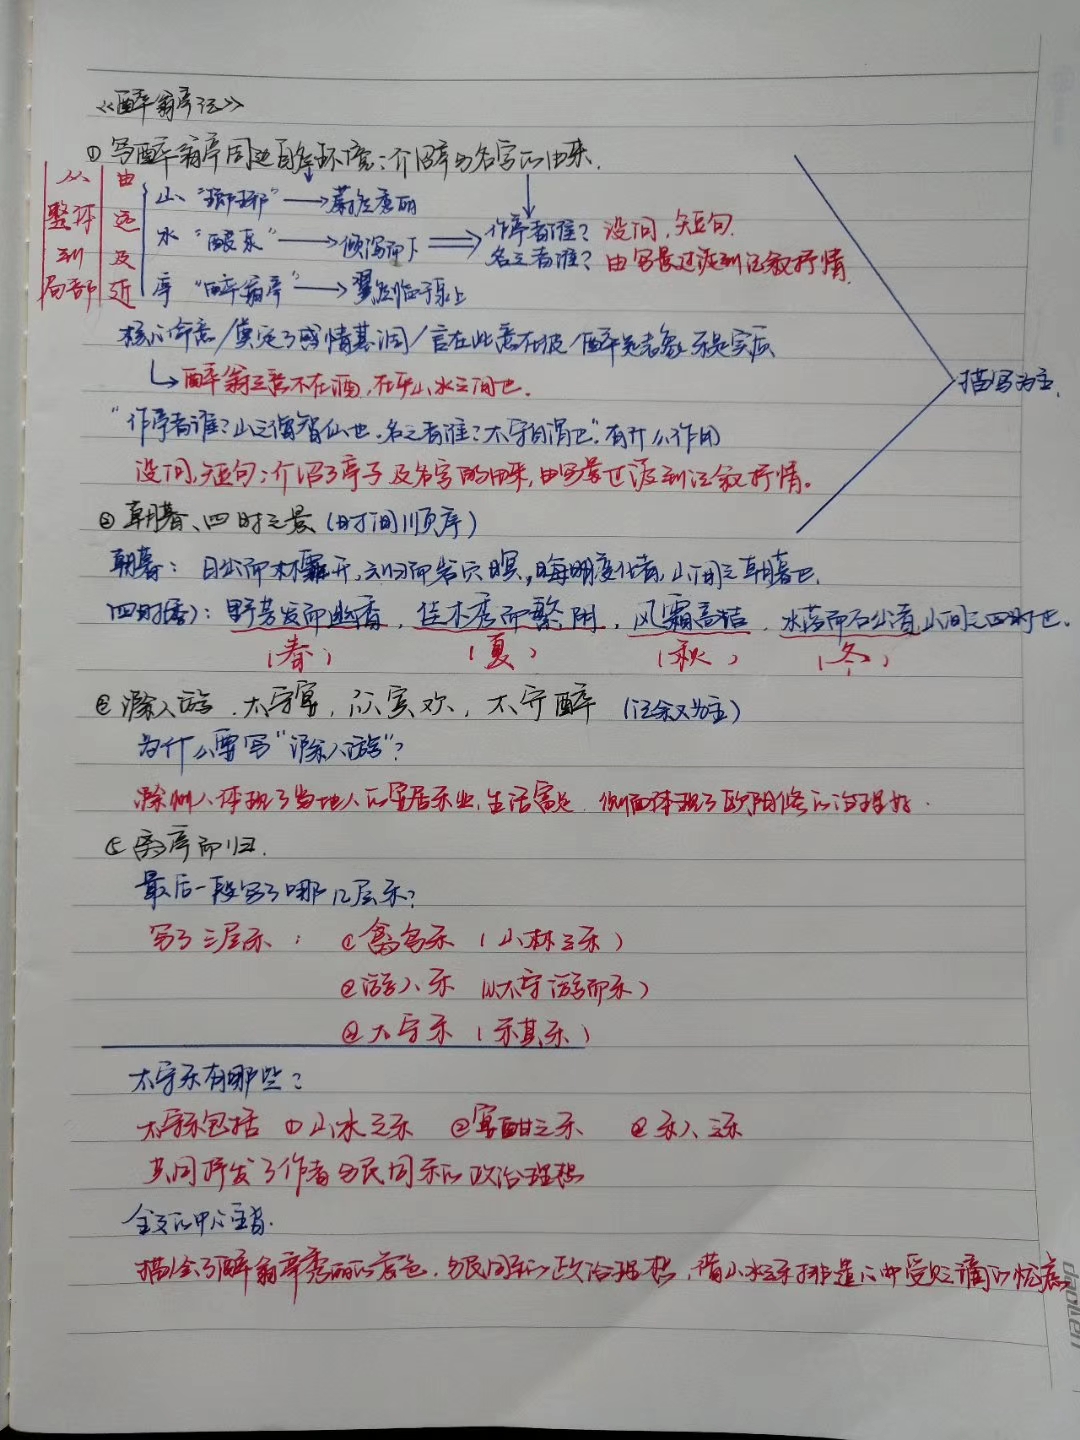 《醉翁亭记》
① 写醉翁亭周边自然环境：介绍亭与名字的由来.
从整体到局部
由远及近
山 "琅琊" → 蔚然秀丽
水 "酿泉" → 倾泻而下
亭 "醉翁亭" → 翼然临于泉上
作亭者谁? 设问,短句.
名之者谁? 由写景过渡到记叙抒情.
核心命意/奠定了感情基调/言在此意在彼/醉是表象乐是实质
醉翁之意不在酒,在乎山水之间也.
"作亭者谁?山之僧智仙也.名之者谁?太守自谓也".有什么作用
设问,短句:介绍了亭子及名字的由来,由写景过渡到记叙抒情。
描写为主.
② 朝暮、四时之景(时间顺序)
朝暮: 日出而林霏开,云归而岩穴暝,晦明变化者,山间之朝暮也.
四时: 野芳发而幽香,佳木秀而繁阴,风霜高洁,水落而石出者,山间之四时也.
(春) (夏) (秋) (冬)
滁人游.太守宴,众宾欢,太守醉 (记叙为主)
为什么要写"滁人游"?
滁州人体现了当地人的安居乐业,生活富足,侧面体现了欧阳修的治理好.
离亭而归.
最后一段写了哪几层乐?
写了三层乐: ① 禽鸟乐 (山林之乐)
② 游人乐 (从太守游而乐)
③ 太守乐 (乐其乐)
太守乐有哪些?
太守乐包括 ① 山水之乐 ② 宴酣之乐 ③ 乐人之乐
共同抒发了作者与民同乐的政治理想
全文的中心主旨.
描绘了醉翁亭秀丽的景色.与民同乐的政治理想,借山水之乐排遣心中受贬谪的忧虑